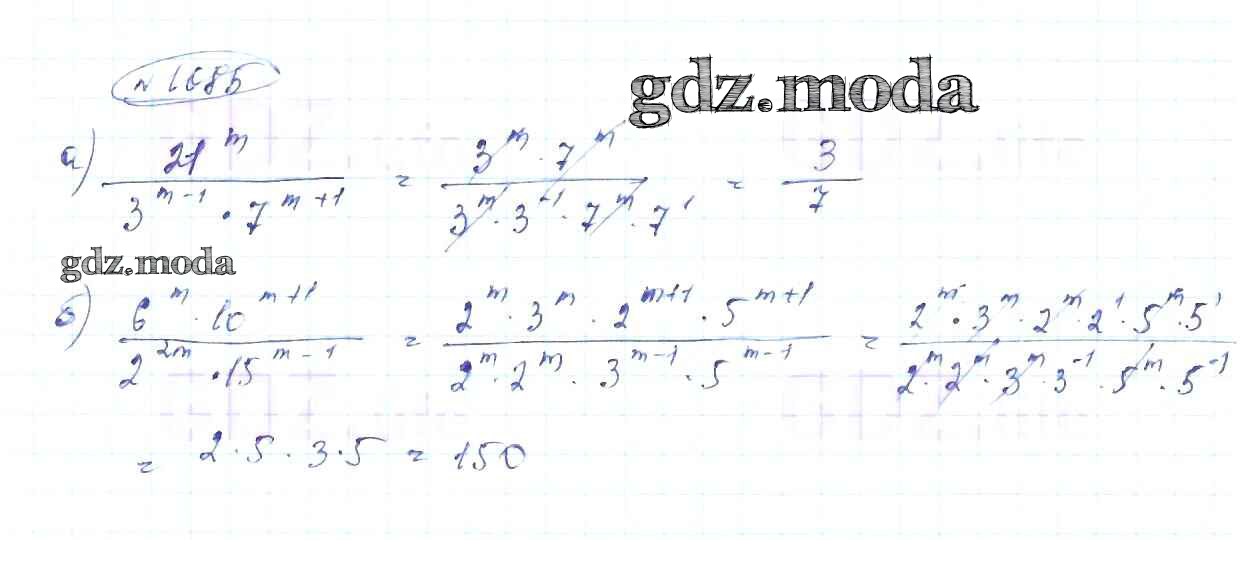 № 1685
gdz.moda
а) 21^m / (3^(m-1) · 7^(m+1)) = (3^m · 7^m) / (3^m · 3^-1 · 7^m · 7^1) = 3/7
gdz.moda
б) (6^m · 10^(m+1)) / (2^(2m) · 15^(m-1)) = (2^m · 3^m · 2^(m+1) · 5^(m+1)) / (2^m · 2^m · 3^(m-1) · 5^(m-1)) = (2^m · 3^m · 2^m · 2^1 · 5^m · 5^1) / (2^m · 2^m · 3^m · 3^-1 · 5^m · 5^-1)
= 2 · 5 · 3 · 5 = 150